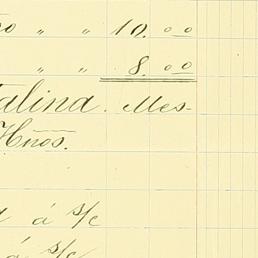 " " 10.00
" " 8.00
alina. Mes-
Hños.
á s/c
á s/c